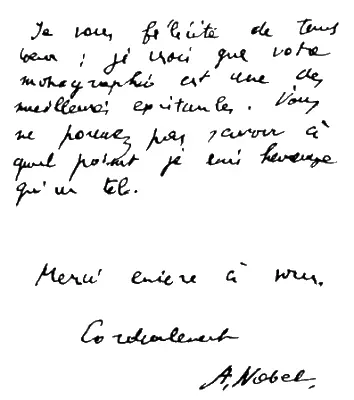 Je vous félicite de tout
cœur ; je crois que votre
monographie est une des
meilleures existantes. Vous
ne pouvez pas savoir à
quel point je suis heureuse
qu'un tel.
Merci encore à vous.
Cordialement
A. Nobel.